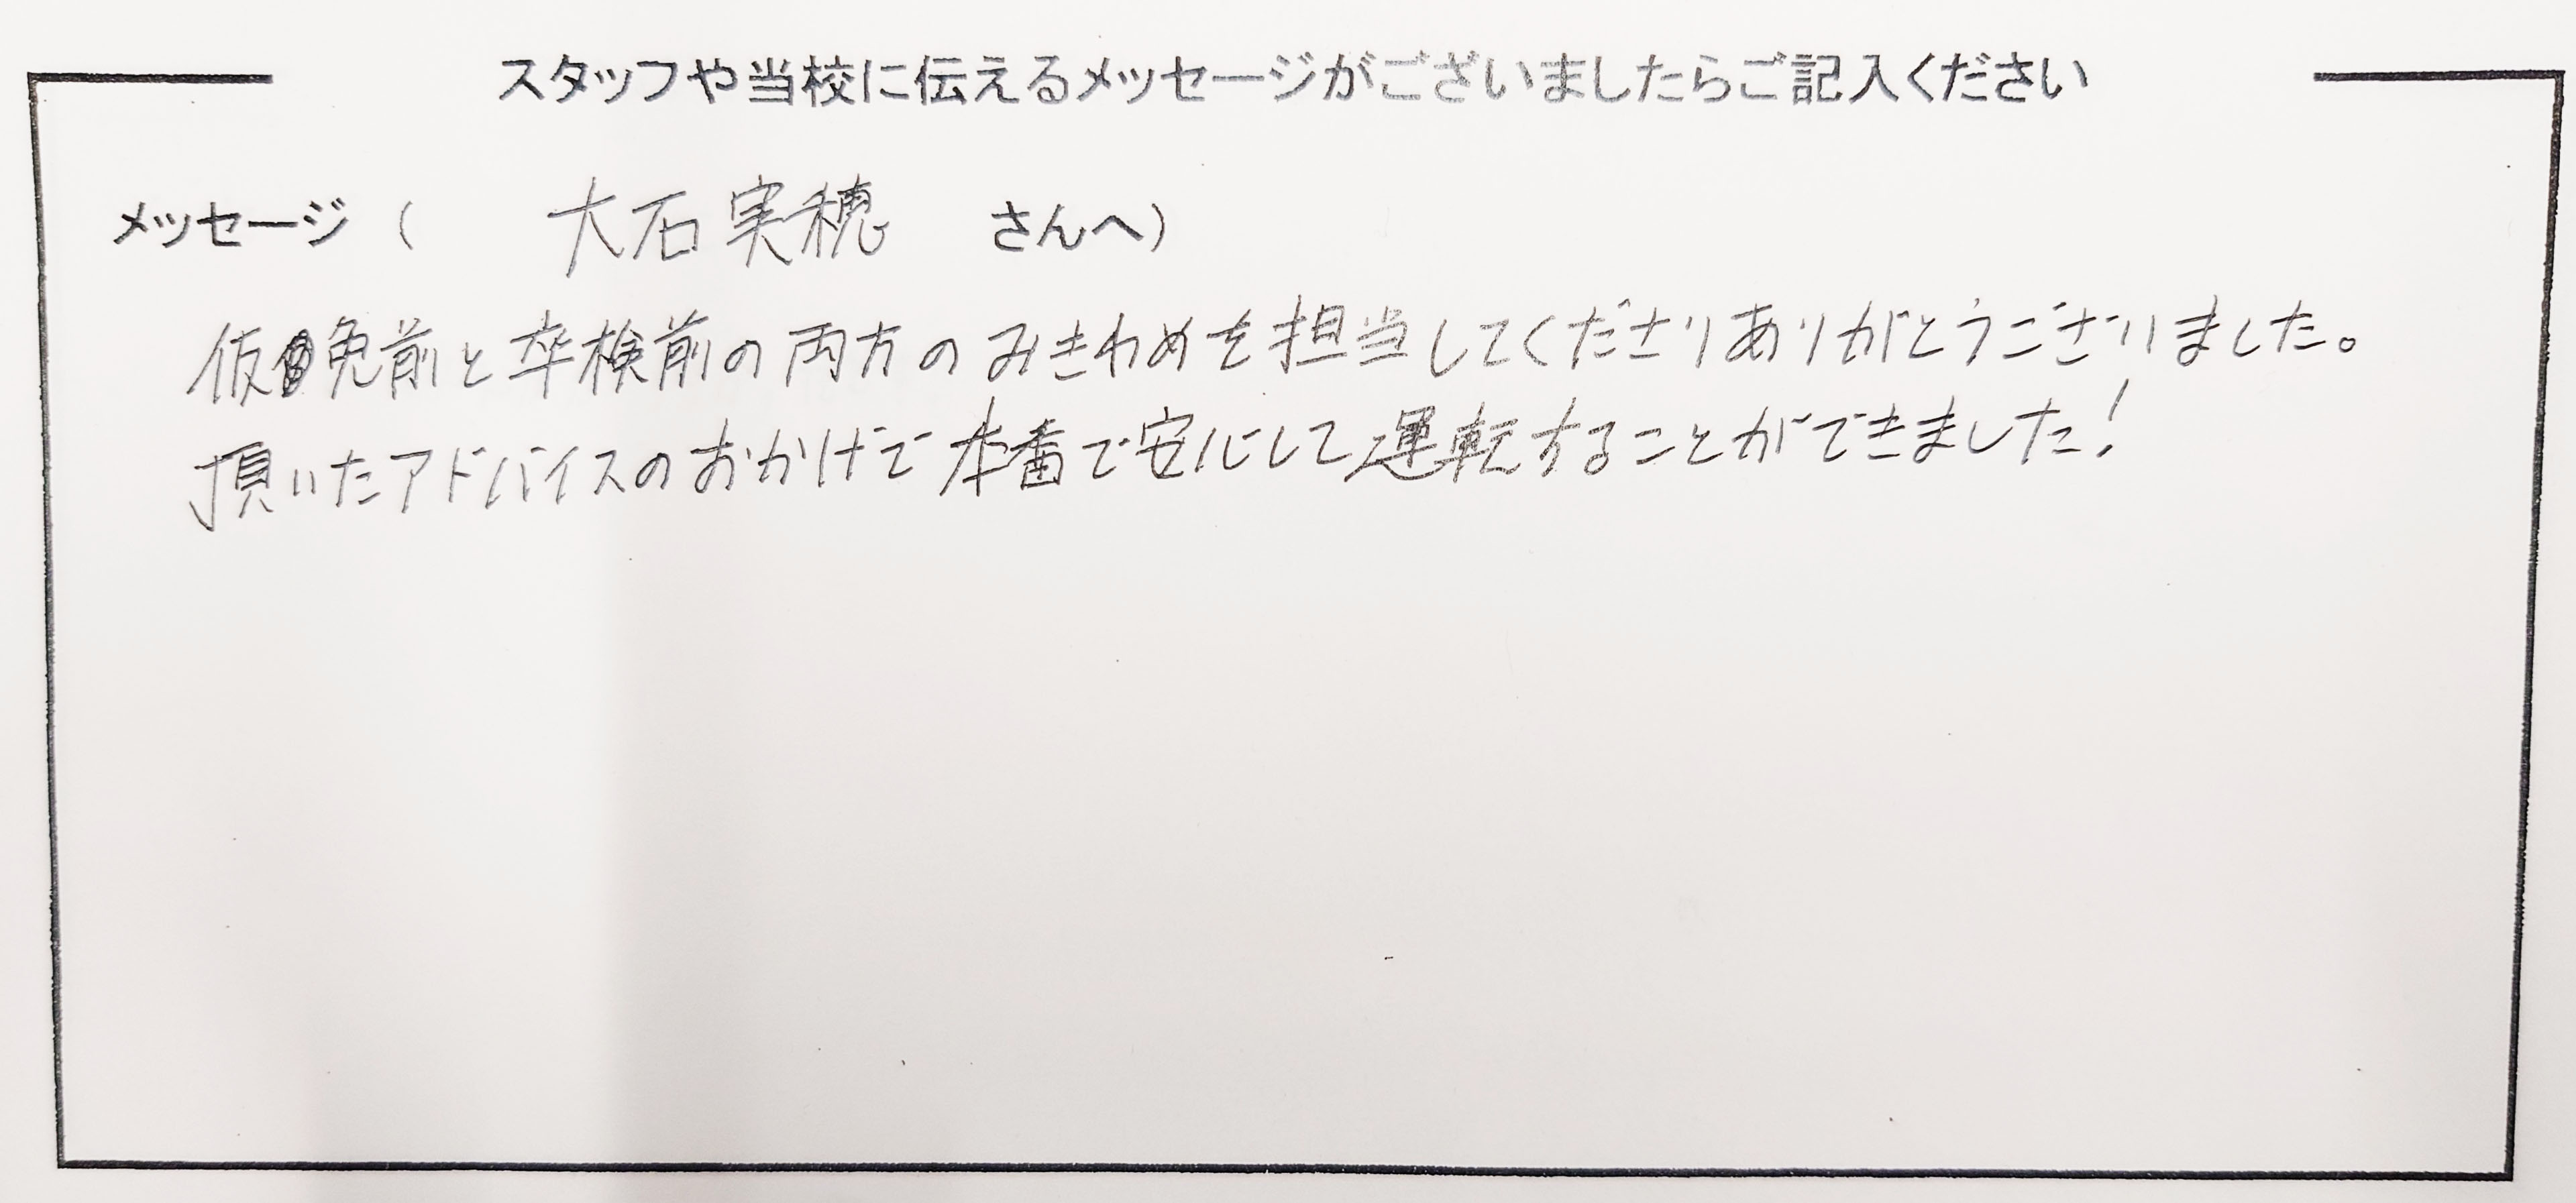 スタッフや当校に伝えるメッセージがございましたらご記入ください
メッセージ（　大石実穂　さんへ）
仮免前と卒検前の両方のみきわめを担当してくださりありがとうございました。
頂いたアドバイスのおかげで本番で安心して運転することができました!